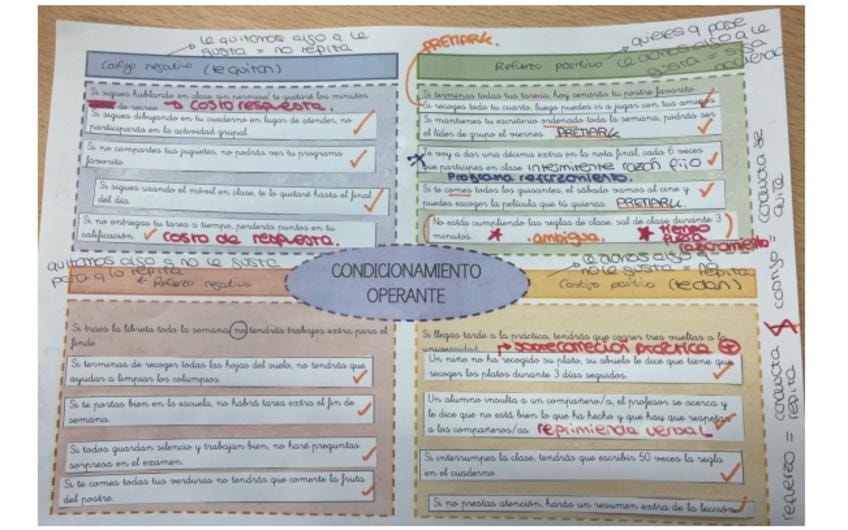 le quitamos algo q le
gusta = no repita
Castigo negativo (te quitan)
Si sigues hablando en clase sin permiso, te quitaré los minutos
de recreo. → costo respuesta.
Si sigues dibujando en tu cuaderno en lugar de atender, no
participarás en la actividad grupal.
Si no compartes tus juguetes, no podrás ver tu programa
favorito.
Si sigues usando el móvil en clase, te lo quitaré hasta el final
del día.
Si no entregas tu tarea a tiempo, perderás puntos en tu
calificación. costo de respuesta.
PREMARK.
quieres q pase
le damos algo q le
gusta = siga
Refuerzo positivo
Si terminas todas tus tareas, hoy cenarás tu postre favorito.
Si recoges todo tu cuarto, luego puedes ir a jugar con tus amigos
Si mantienes tu escritorio ordenado toda la semana, podrás ser
el líder de grupo el viernes. PREMARK
Te voy a dar una décima extra en la nota final, cada 6 veces
que participes en clase. intermitente razón fijo
Programa reforzamiento.
Si te comes todos los guisantes, el sábado vamos al cine y
puedes escoger la película que tú quieras. PREMARK.
No estás cumpliendo las reglas de clase, sal de clase durante 3
minutos. ambigua. tiempo
fuera
razonamiento
CONDICIONAMIENTO
OPERANTE
quitamos algo q no le gusta
para q lo repita
← Refuerzo negativo
Si traes la libreta toda la semana no tendrás trabajos extra para el
finde.
Si terminas de recoger todas las hojas del suelo, no tendrás que
ayudar a limpiar los columpios.
Si te portas bien en la escuela, no habrá tarea extra el fin de
semana.
Si todos guardan silencio y trabajan bien, no haré preguntas
sorpresa en el examen.
Si te comes todas tus verduras no tendrás que comerte la fruta
del postre.
le damos algo q
no le gusta = no repita
Castigo positivo (te dan)
Si llegas tarde a la práctica, tendrás que correr tres vueltas a la
universidad. → sobrecorrección práctica +
Un niño no ha recogido su plato, su abuelo le dice que tiene que
recoger los platos durante 3 días seguidos.
Un alumno insulta a un compañero/a, el profesor se acerca y
le dice que no está bien lo que ha hecho y que hay que respetar
a los compañeros/as. reprimienda verbal
Si interrumpes la clase, tendrás que escribir 50 veces la regla
en el cuaderno.
Si no prestas atención, harás un resumen extra de la lección.
refuerzo = conducta repita
castigo = conducta se quite